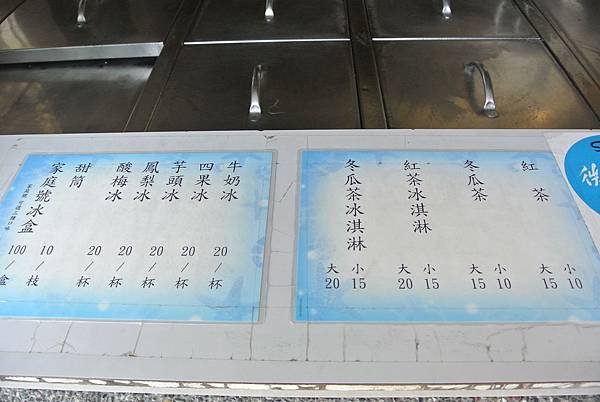 紅茶 大15 小10
冬瓜茶 大15 小10
紅茶冰淇淋 大20 小15
冬瓜茶冰淇淋 大20 小15
牛奶冰 20/杯
四果冰 20/杯
芋頭冰 20/杯
鳳梨冰 20/杯
酸梅冰 20/杯
甜筒 10/枝
家庭號冰盒 100/盒